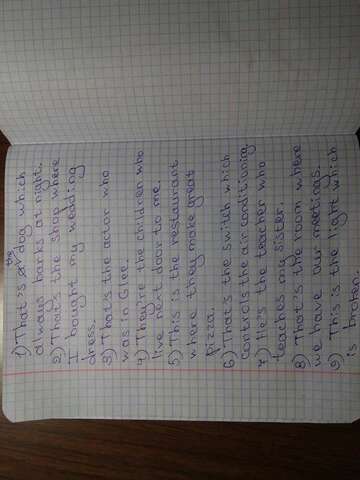 1) That's the dog which
always barks at night.
2) That's the shop where
I bought my wedding
dress.
3) That's the actor who
was in Glee.
4) They're the children who
live next door to me.
5) This is the restaurant
where they make great
pizza.
6) That's the switch which
controls the air conditioning
7) He's the teacher who
teaches my sister.
8) That's the room where
we have our meetings.
9) This is the light which
is broken